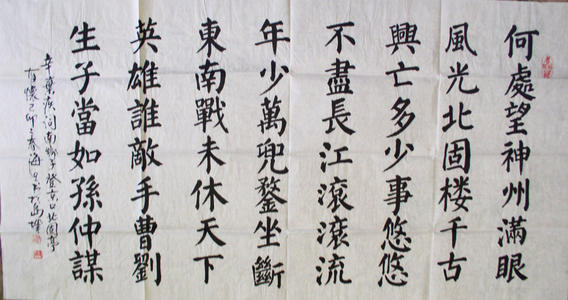 何處望神州滿眼
風光北固楼千古
興亡多少事悠悠
不盡長江滾滾流
年少萬兜鍪坐斷
東南戰未休天下
英雄誰敵手曹劉
生子當如孫仲謀
辛棄疾詞南鄉子登京口北固亭
有懷己卯之春海